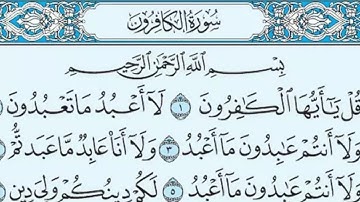 سُورَةُ الكَافِرُونَ
بِسْمِ اللَّهِ الرَّحْمَٰنِ الرَّحِيمِ
قُلْ يَا أَيُّهَا الْكَافِرُونَ ١ لَا أَعْبُدُ مَا تَعْبُدُونَ
وَلَا أَنتُمْ عَابِدُونَ مَا أَعْبُدُ ٣ وَلَا أَنَا عَابِدٌ مَّا عَبَدتُّمْ
وَلَا أَنتُمْ عَابِدُونَ مَا أَعْبُدُ ٥ لَكُمْ دِينُكُمْ وَلِيَ دِينِ